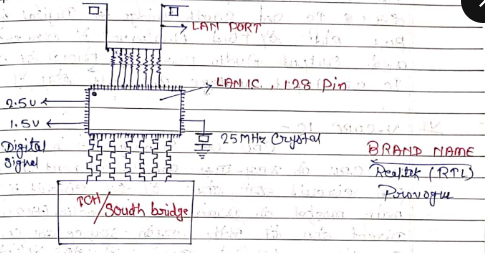 LAN PORT
LAN IC, 128 Pin
2.5V
1.5V
Digital
Signel
25MHz Crystal
BRAND NAME
Realtek (RTL)
PCH/South bridge